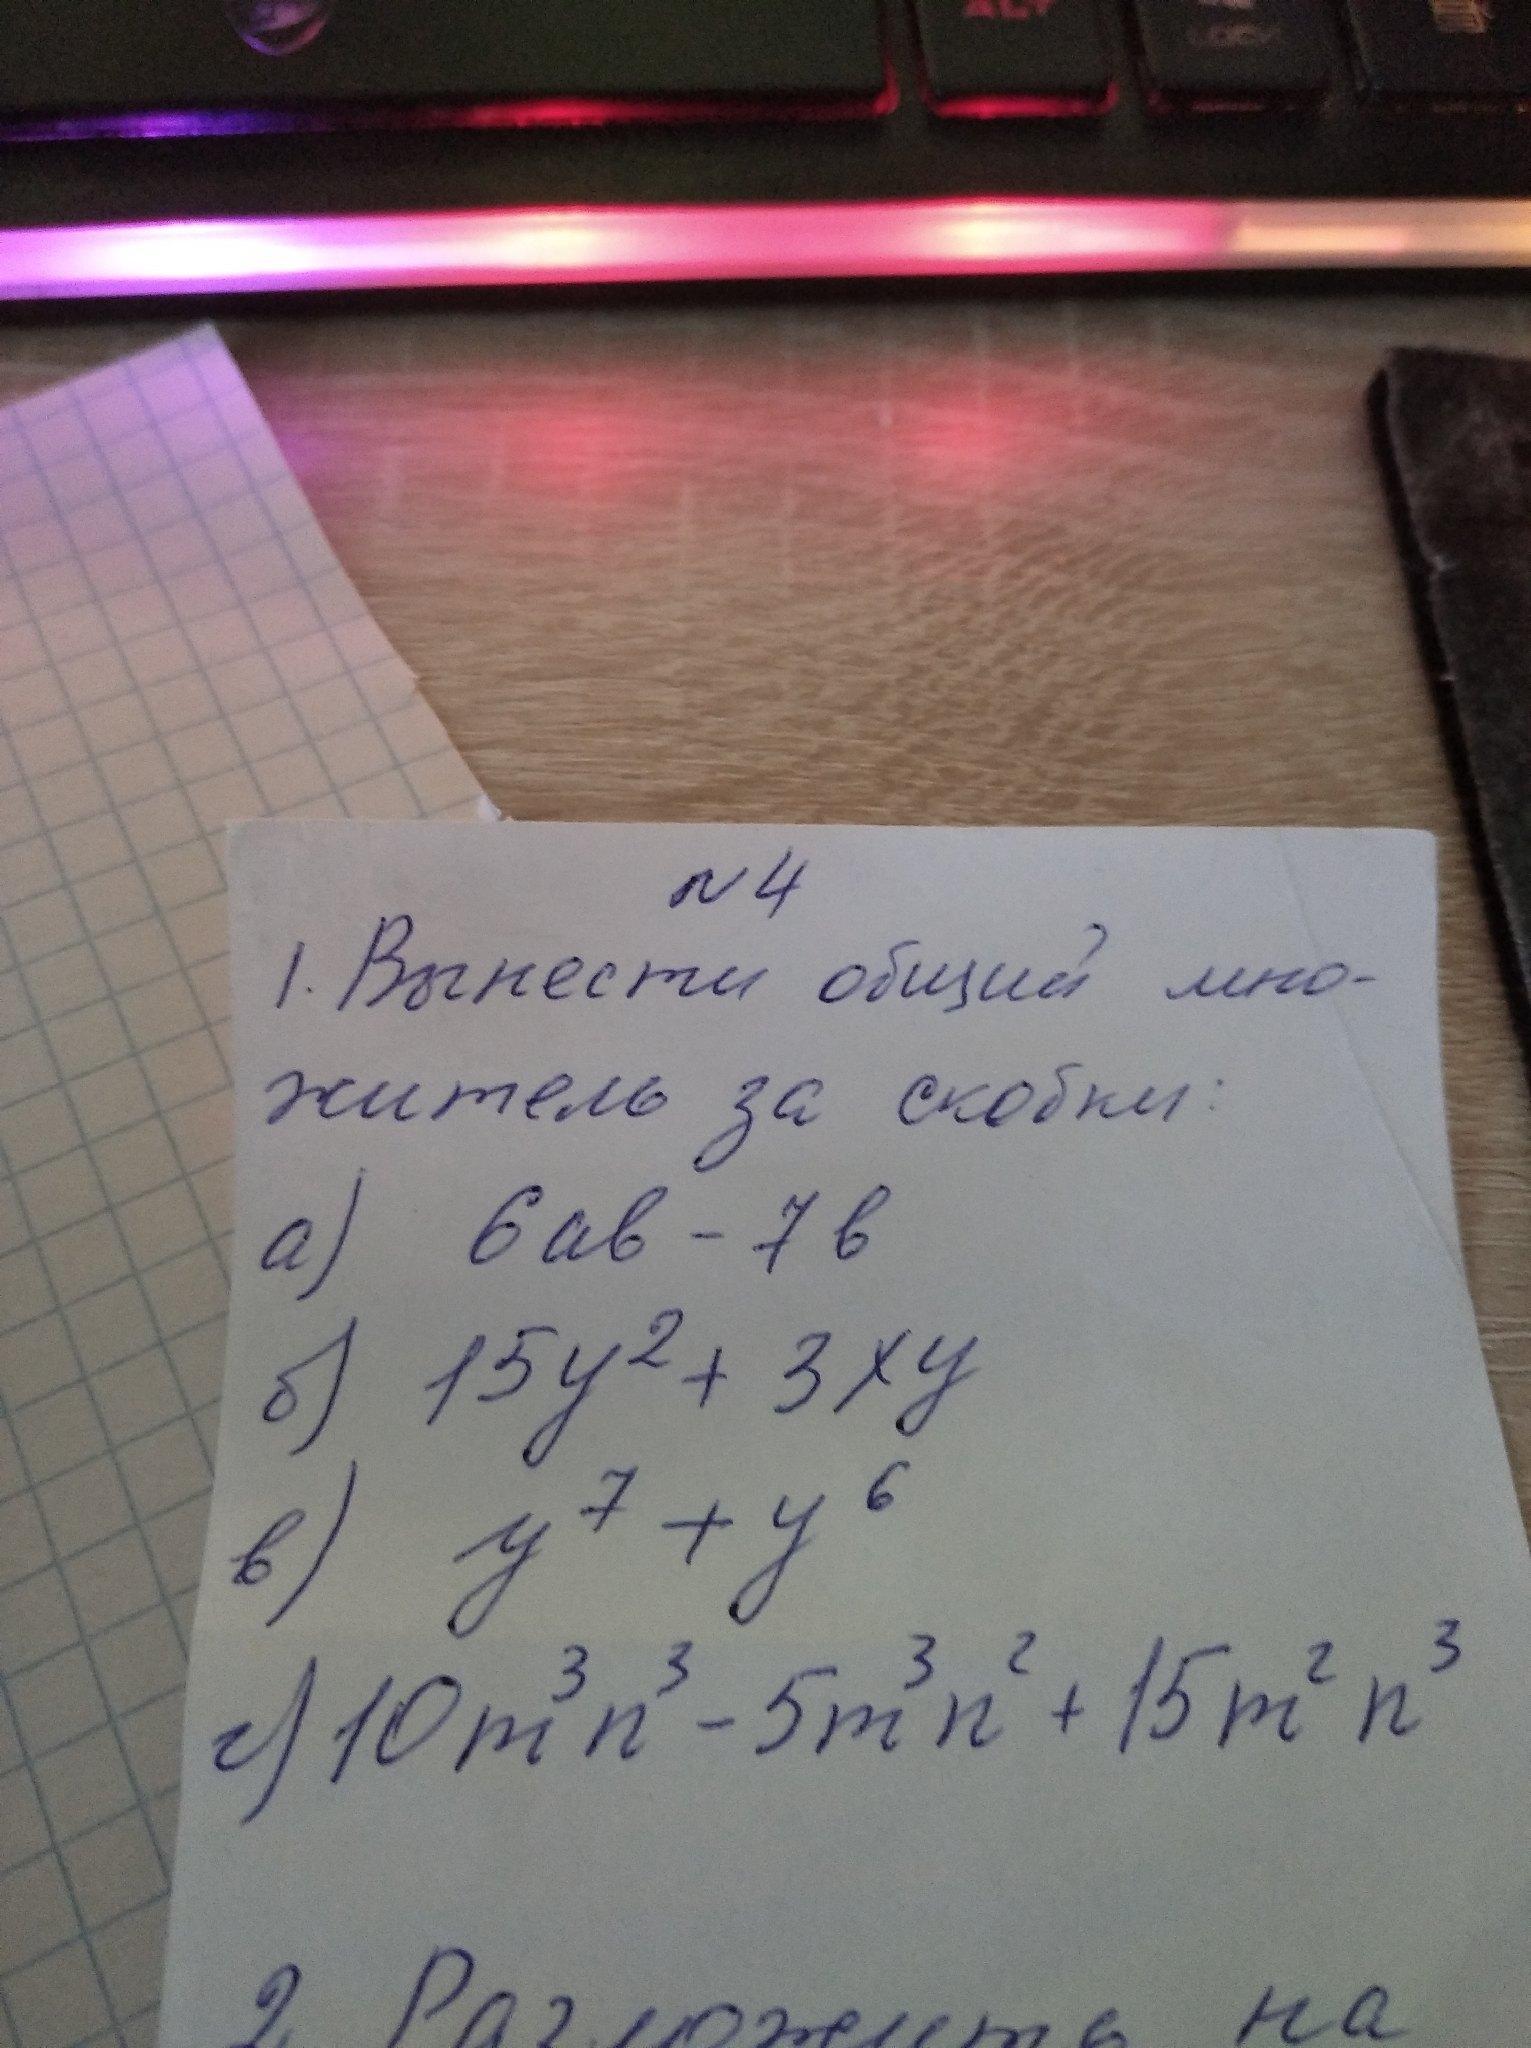 ALT
№4
1. Вынести общий мно-
житель за скобки:
а) 6ab - 7b
б) 15y² + 3xy
в) y⁷ + y⁶
г) 10m³n³ - 5m³n² + 15m²n³
2 Разложить на